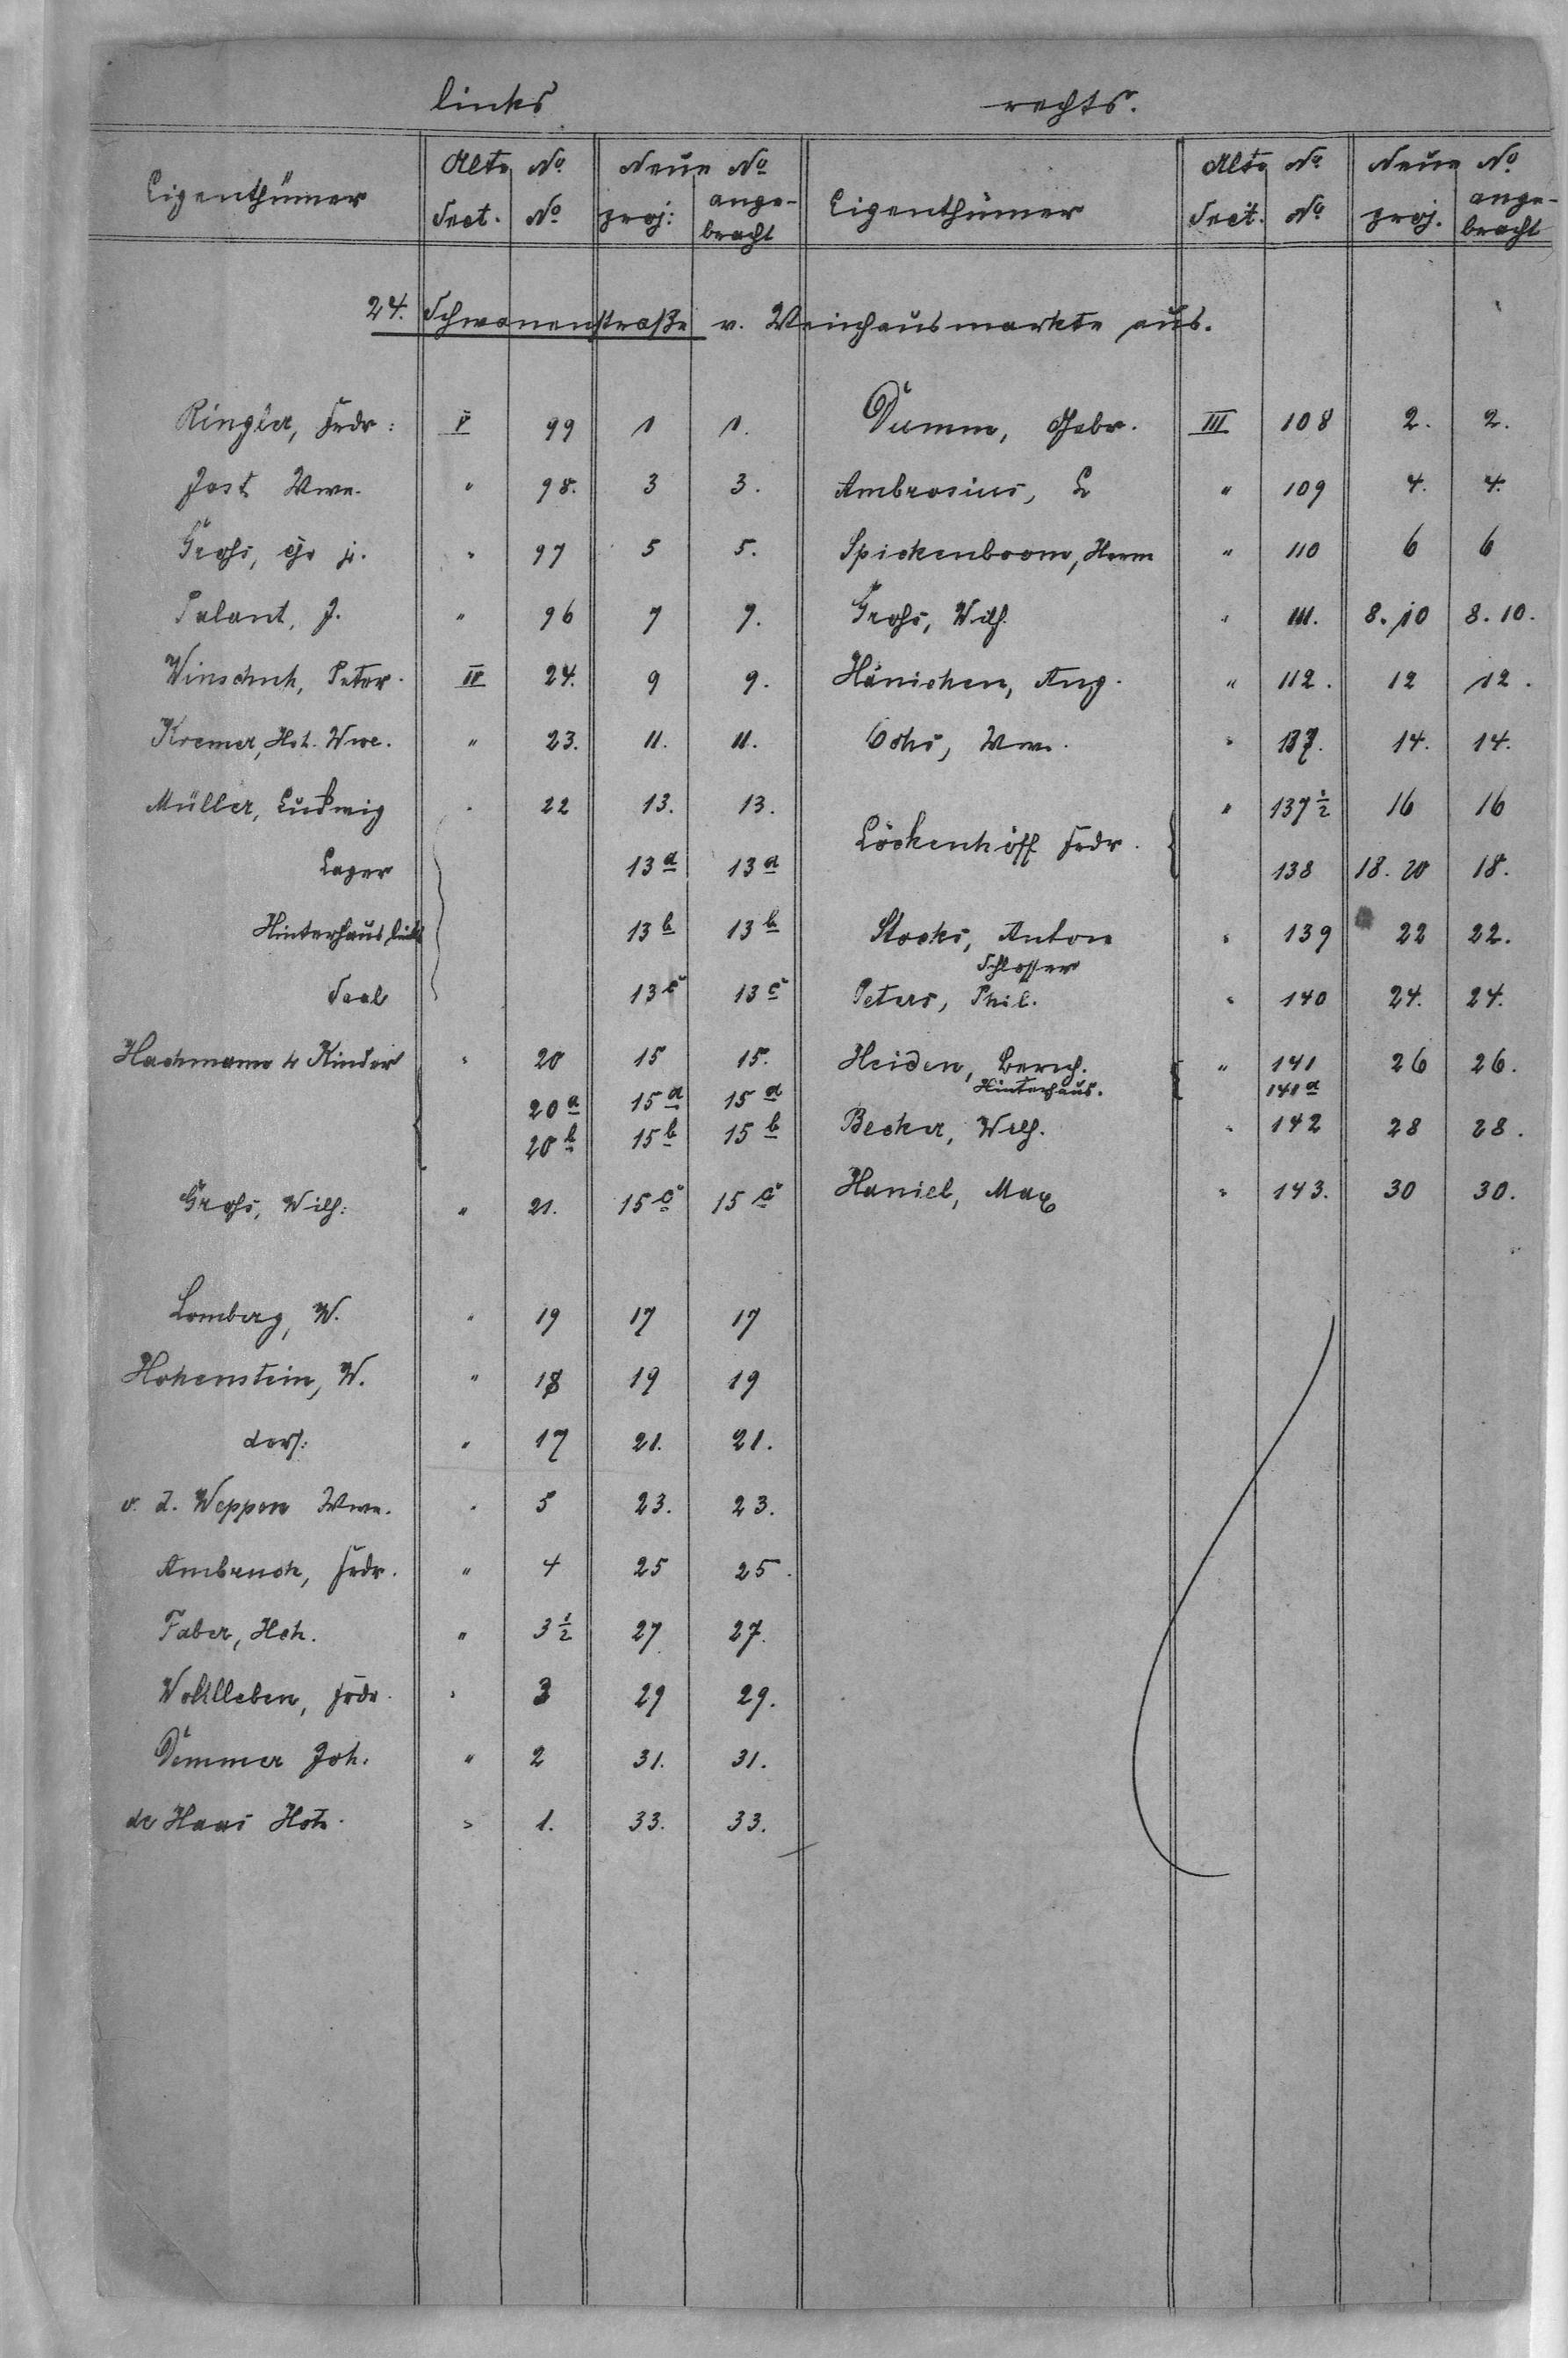 links rechts.
Eigenthümer Alte No Neue No Eigenthümer Alte No Neue No
Sect. No proj: ange-bracht Sect. No proj. ange-bracht
24. Schwanenstraße v. Weinhausmarkte aus.
Ringler, Frdr: V 99 1 1. Dumm, Gebr. III 108 2. 2.
Jost Wwe. " 98. 3 3. Ambrosius, L " 109 4. 4.
Grohs, j. " 97 5 5. Spickenboom, Herm " 110 6 6
Palant, J. " 96 7 7. Grohs, Wilh. " 111. 8. 10 8. 10.
Winschuh, Peter. IV 24. 9 9. Hänichen, Aug. " 112. 12 12.
Kremer, Hch. Wwe. " 23. 11. 11. Ochs, Wwe. " 137. 14. 14.
Müller, Ludwig " 22 13. 13. " 137½ 16 16
Lager 13a 13a Löckenhoff Frdr. 138 18. 20 18.
Hinterhaus links 13b 13b Stocks, Anton " 139 22 22.
Saal 13c 13c Peters, Phil. Schlosser " 140 24. 24.
Hachmann 4 Kinder " 20 15 15. Heiden, Bernh. " 141 26 26.
20a 15a 15a Hinterhaus. 141a
20b 15b 15b Becker, Wilh. " 142 28 28.
Grohs, Wilh: " 21. 15c 15c Haniel, Max " 143. 30 30.
Lomberg, W. " 19 17 17
Hohenstein, W. " 18 19 19
ders: " 17 21. 21.
v. d. Weppen Wwe. " 5 23. 23.
Ambruch, Frdr. " 4 25 25.
Faber, Hch. " 3½ 27 27.
Wohlleben, Frdr. " 3 29 29.
Demmer Joh. " 2 31. 31.
de Haas Hch. " 1. 33. 33.